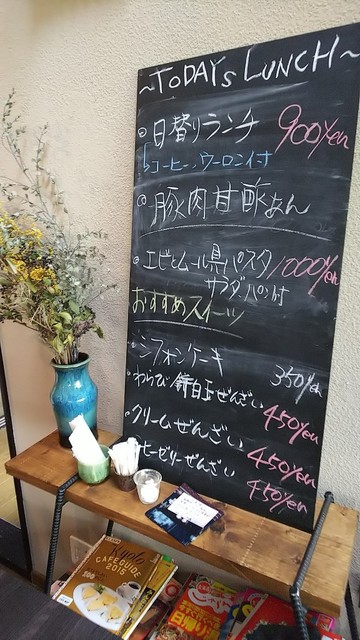 ~TODAY's LUNCH~
日替りランチ 900yen
コーヒー、ウーロン付
豚肉甘酢あん
エビとムール貝パスタ 1000yen
サラダ、パン付
おすすめスイーツ
シフォンケーキ 350yen
わらび 白玉ぜんざい 450yen
クリームぜんざい 450yen
コーヒーゼリーぜんざい 450yen
Kyoto
CAFE GUIDE
2015